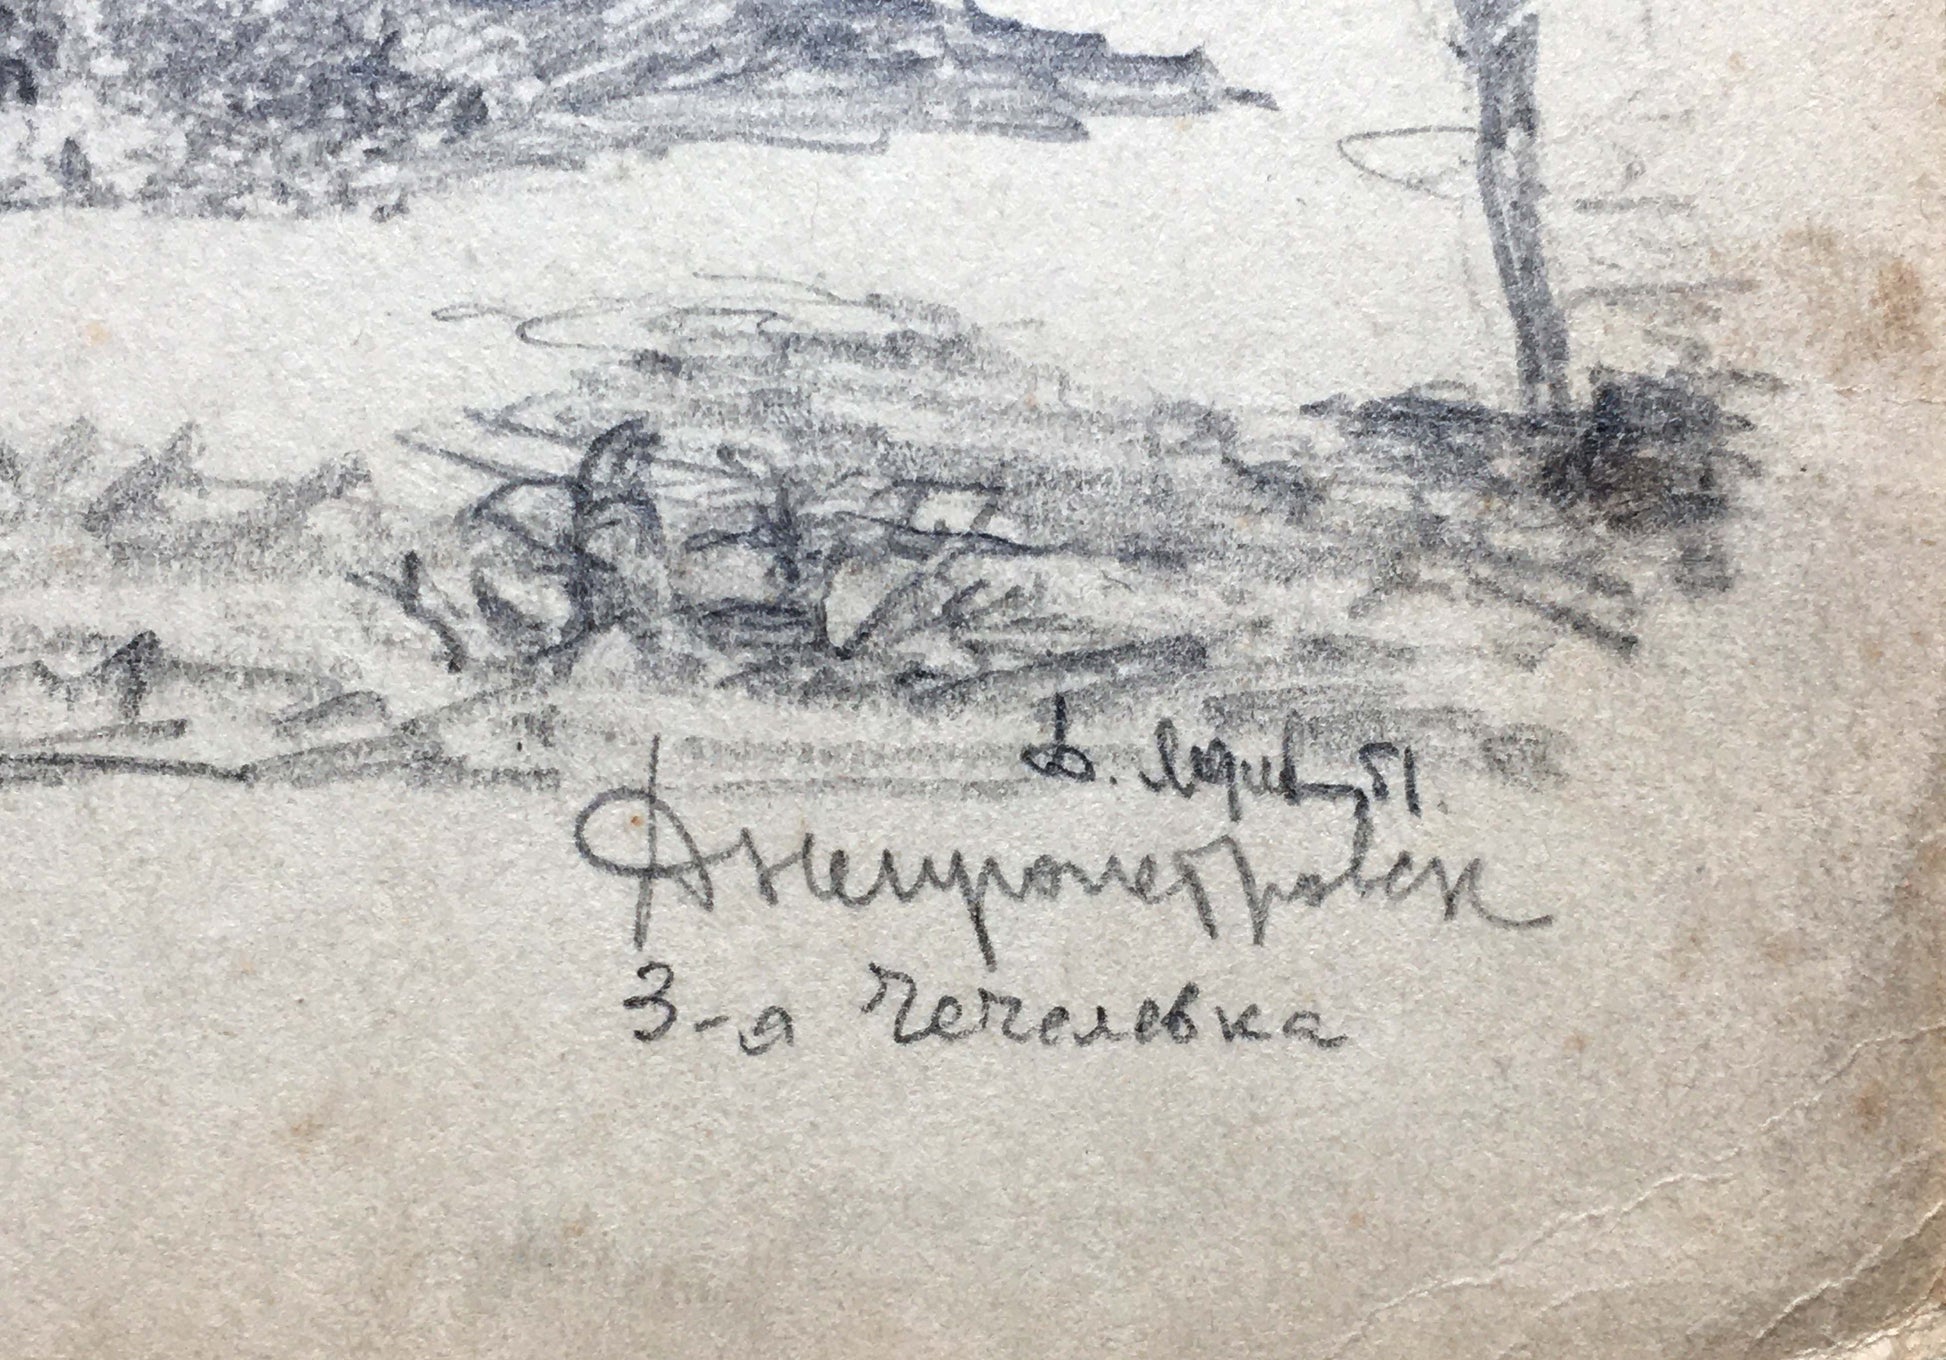 51.
Днепропетровск
3-я Чечелевка